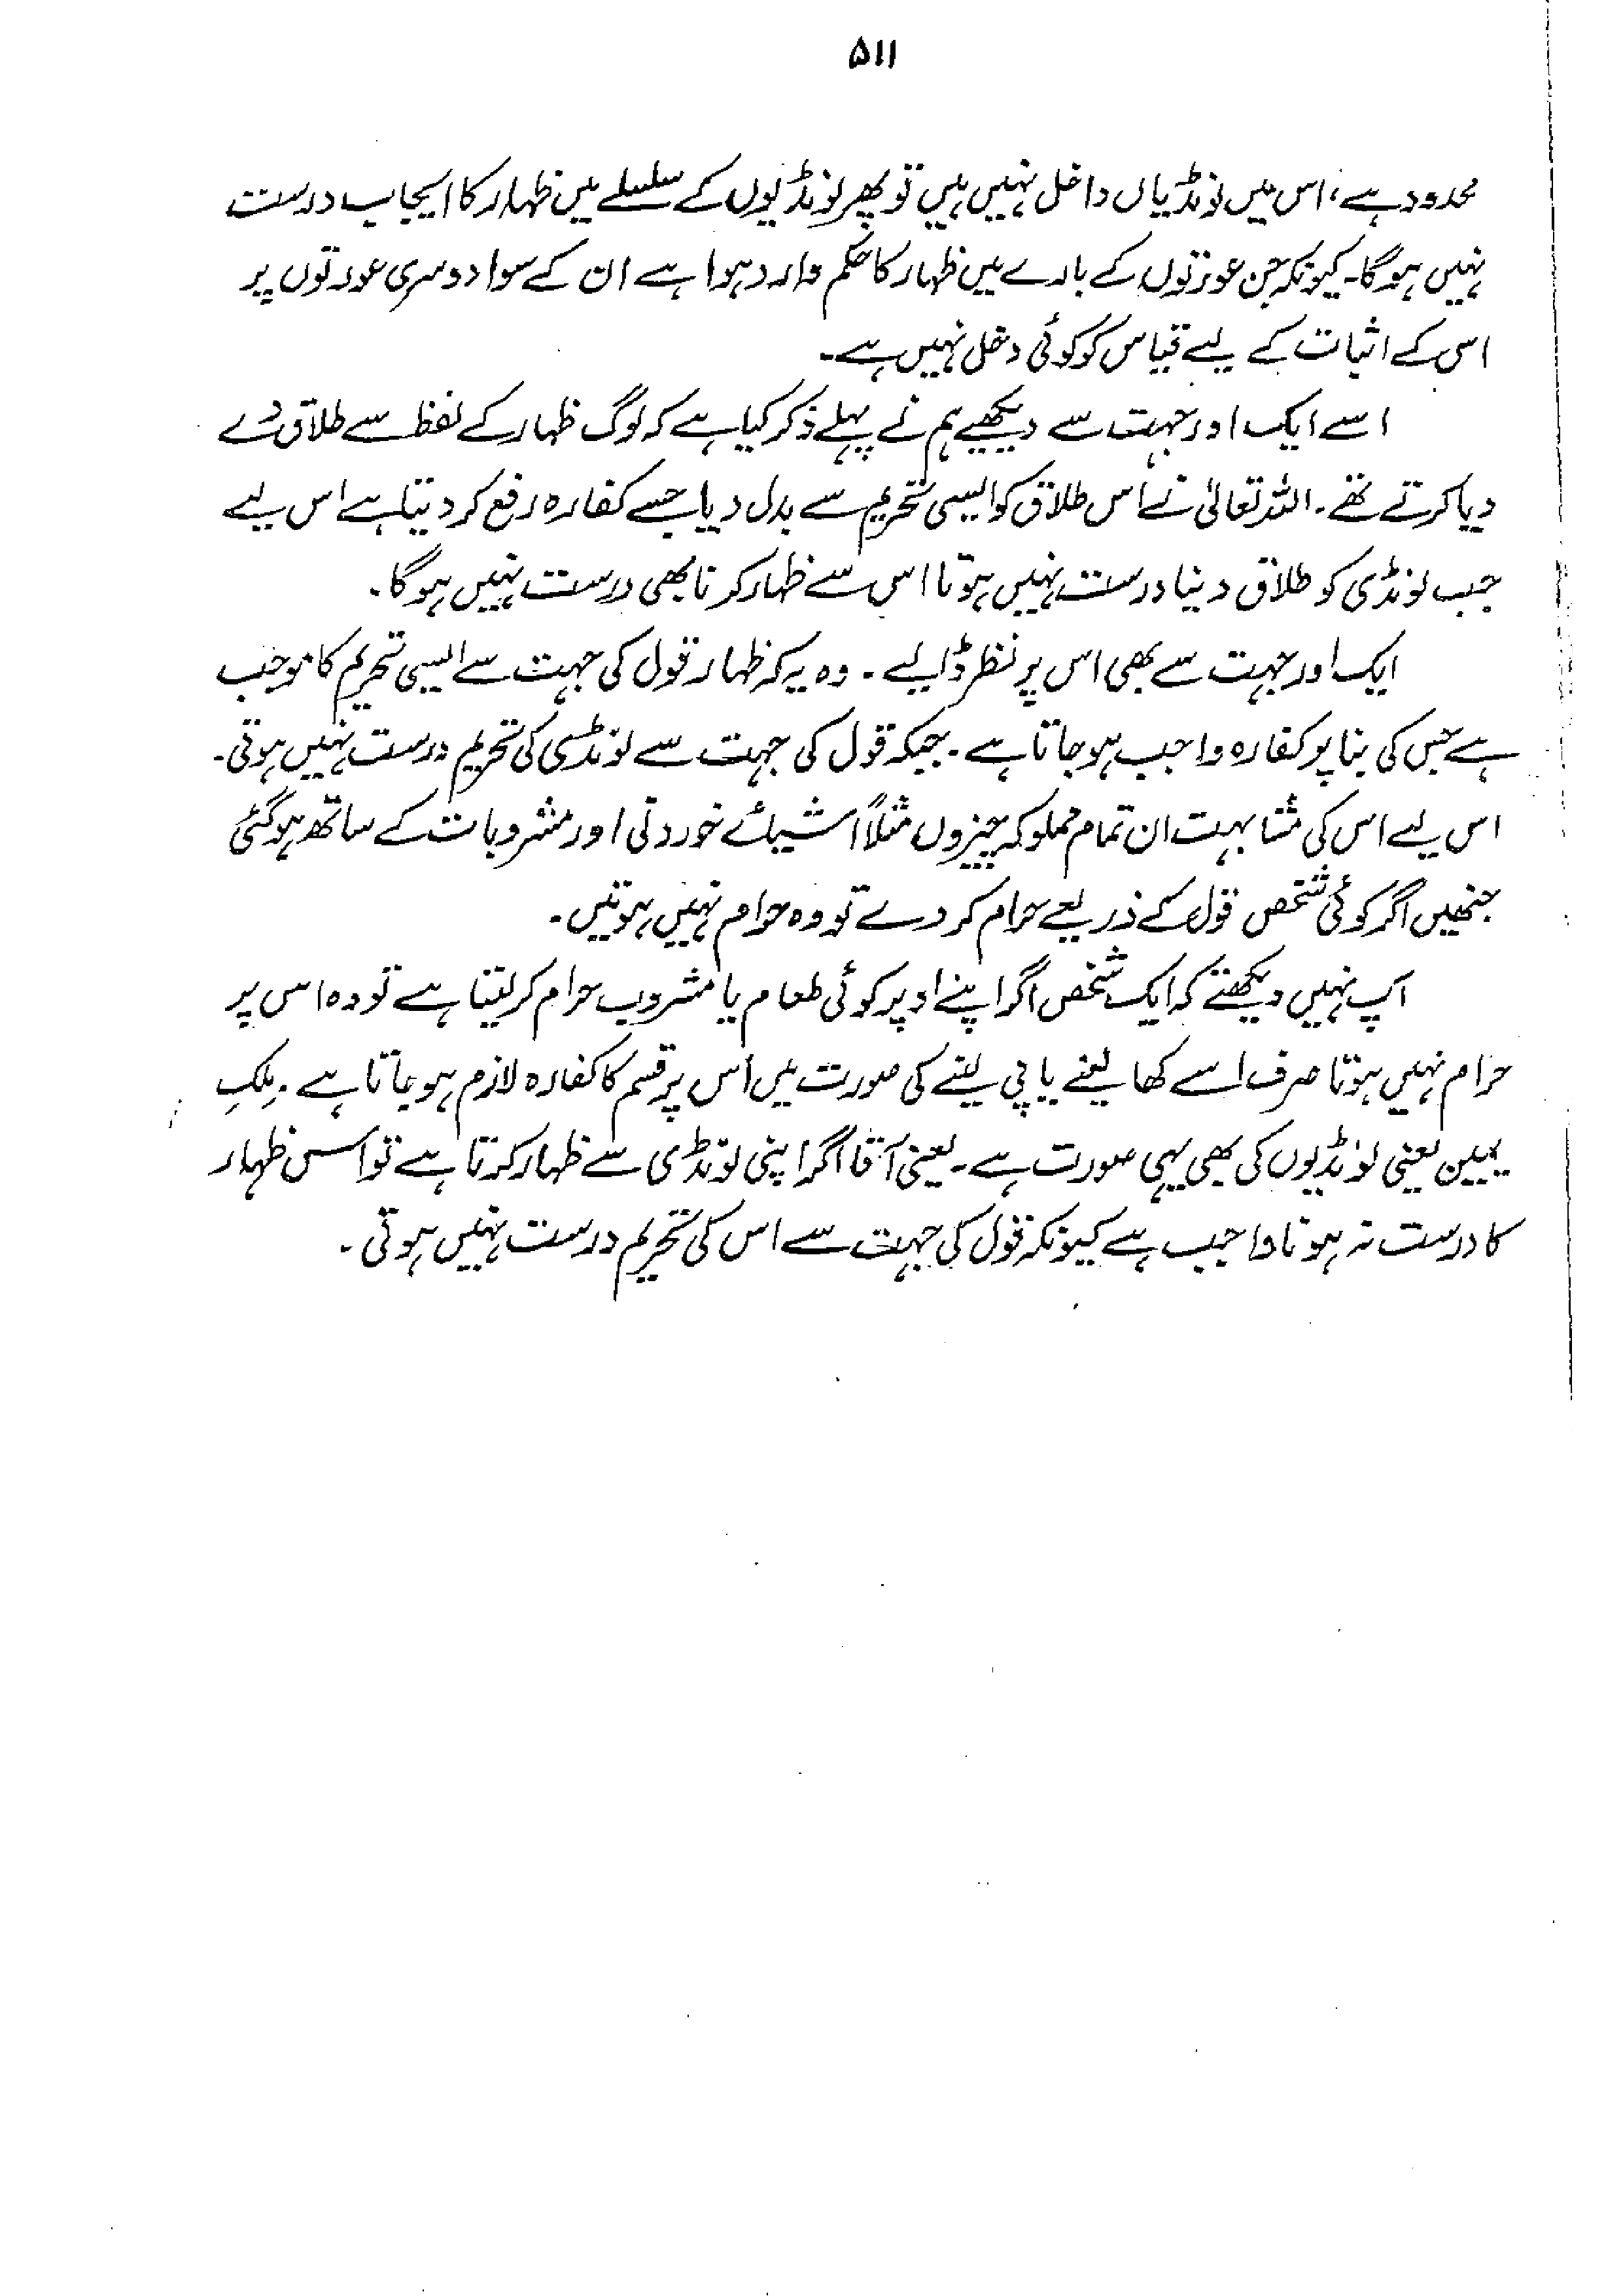 ۵۱۱
محدود ہے، اس میں لونڈیاں داخل نہیں ہیں تو پھر لونڈیوں کے سلسلے میں ظہار کا ایجاب درست
نہیں ہوگا۔ کیونکہ جن عورتوں کے بارے میں ظہار کا حکم وارد ہوا ہے ان کے سوا دوسری عورتوں پر
اس کے اثبات کے لیے قیاس کو کوئی دخل نہیں ہے۔
اسے ایک اور جہت سے دیکھیے ہم نے پہلے ذکر کیا ہے کہ لوگ ظہار کے لفظ سے طلاق دے
دیا کرتے تھے۔ اللہ تعالیٰ نے اس طلاق کو ایسی تحریم سے بدل دیا جسے کفارہ رفع کر دیتا ہے اس لیے
جب لونڈی کو طلاق دینا درست نہیں ہوتا اس سے ظہار کرنا بھی درست نہیں ہوگا۔
ایک اور جہت سے بھی اس پر نظر ڈالیے۔ وہ یہ کہ ظہار قول کی جہت سے ایسی تحریم کا موجب
ہے جس کی بنا پر کفارہ واجب ہو جاتا ہے۔ جبکہ قول کی جہت سے لونڈی کی تحریم درست نہیں ہوتی۔
اس لیے اس کی مشابہت ان تمام مملوکہ چیزوں مثلاً اشیائے خوردنی اور مشروبات کے ساتھ ہو گئی
جنھیں اگر کوئی شخص قول کے ذریعے حرام کر دے تو وہ حرام نہیں ہوتیں۔
آپ نہیں دیکھتے کہ ایک شخص اگر اپنے اوپر کوئی طعام یا مشروب حرام کر لیتا ہے تو وہ اس پر
حرام نہیں ہوتا صرف اسے کھا لینے یا پی لینے کی صورت میں اس پر قسم کا کفارہ لازم ہو جاتا ہے۔ مِلکِ
یمین یعنی لونڈیوں کی بھی یہی صورت ہے۔ یعنی آقا اگر اپنی لونڈی سے ظہار کرتا ہے تو اس ظہار
کا درست نہ ہونا واجب ہے کیونکہ قول کی جہت سے اس کی تحریم درست نہیں ہوتی۔